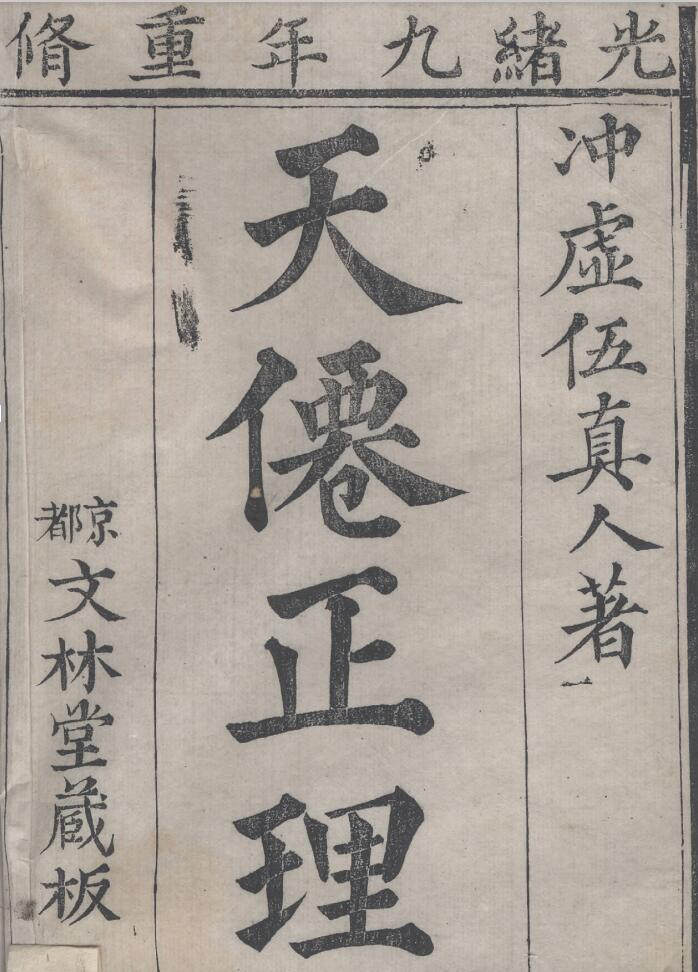 光緒九年重脩
冲虛伍真人著
天僊正理
京都文林堂蔵板